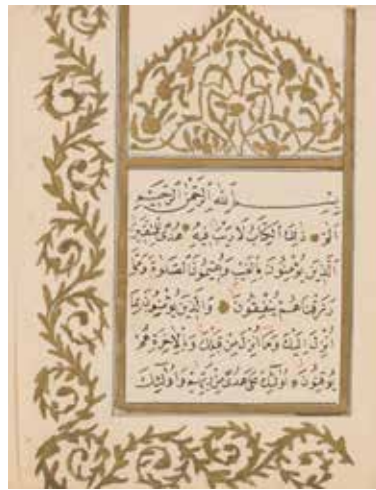 بسم الله الرحمن الرحيم
الم ذلك الكتاب لا ريب فيه هدى للمتقين
الذين يؤمنون بالغيب ويقيمون الصلوة ومما
رزقناهم ينفقون والذين يؤمنون بما
انزل اليك وما انزل من قبلك وبالاخرة هم
يوقنون اولئك على هدى من ربهم واولئك